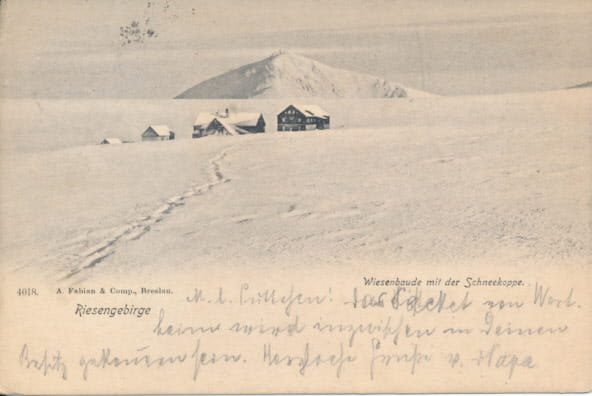 Wiesenbaude mit der Schneekoppe.
4018. A. Fabian & Comp., Breslau.
Riesengebirge
M. l. ! Das Packet von Wert-
heim wird inzwischen in Deinen
Besitz gekommen sein. Herzliche Grüße v. Papa